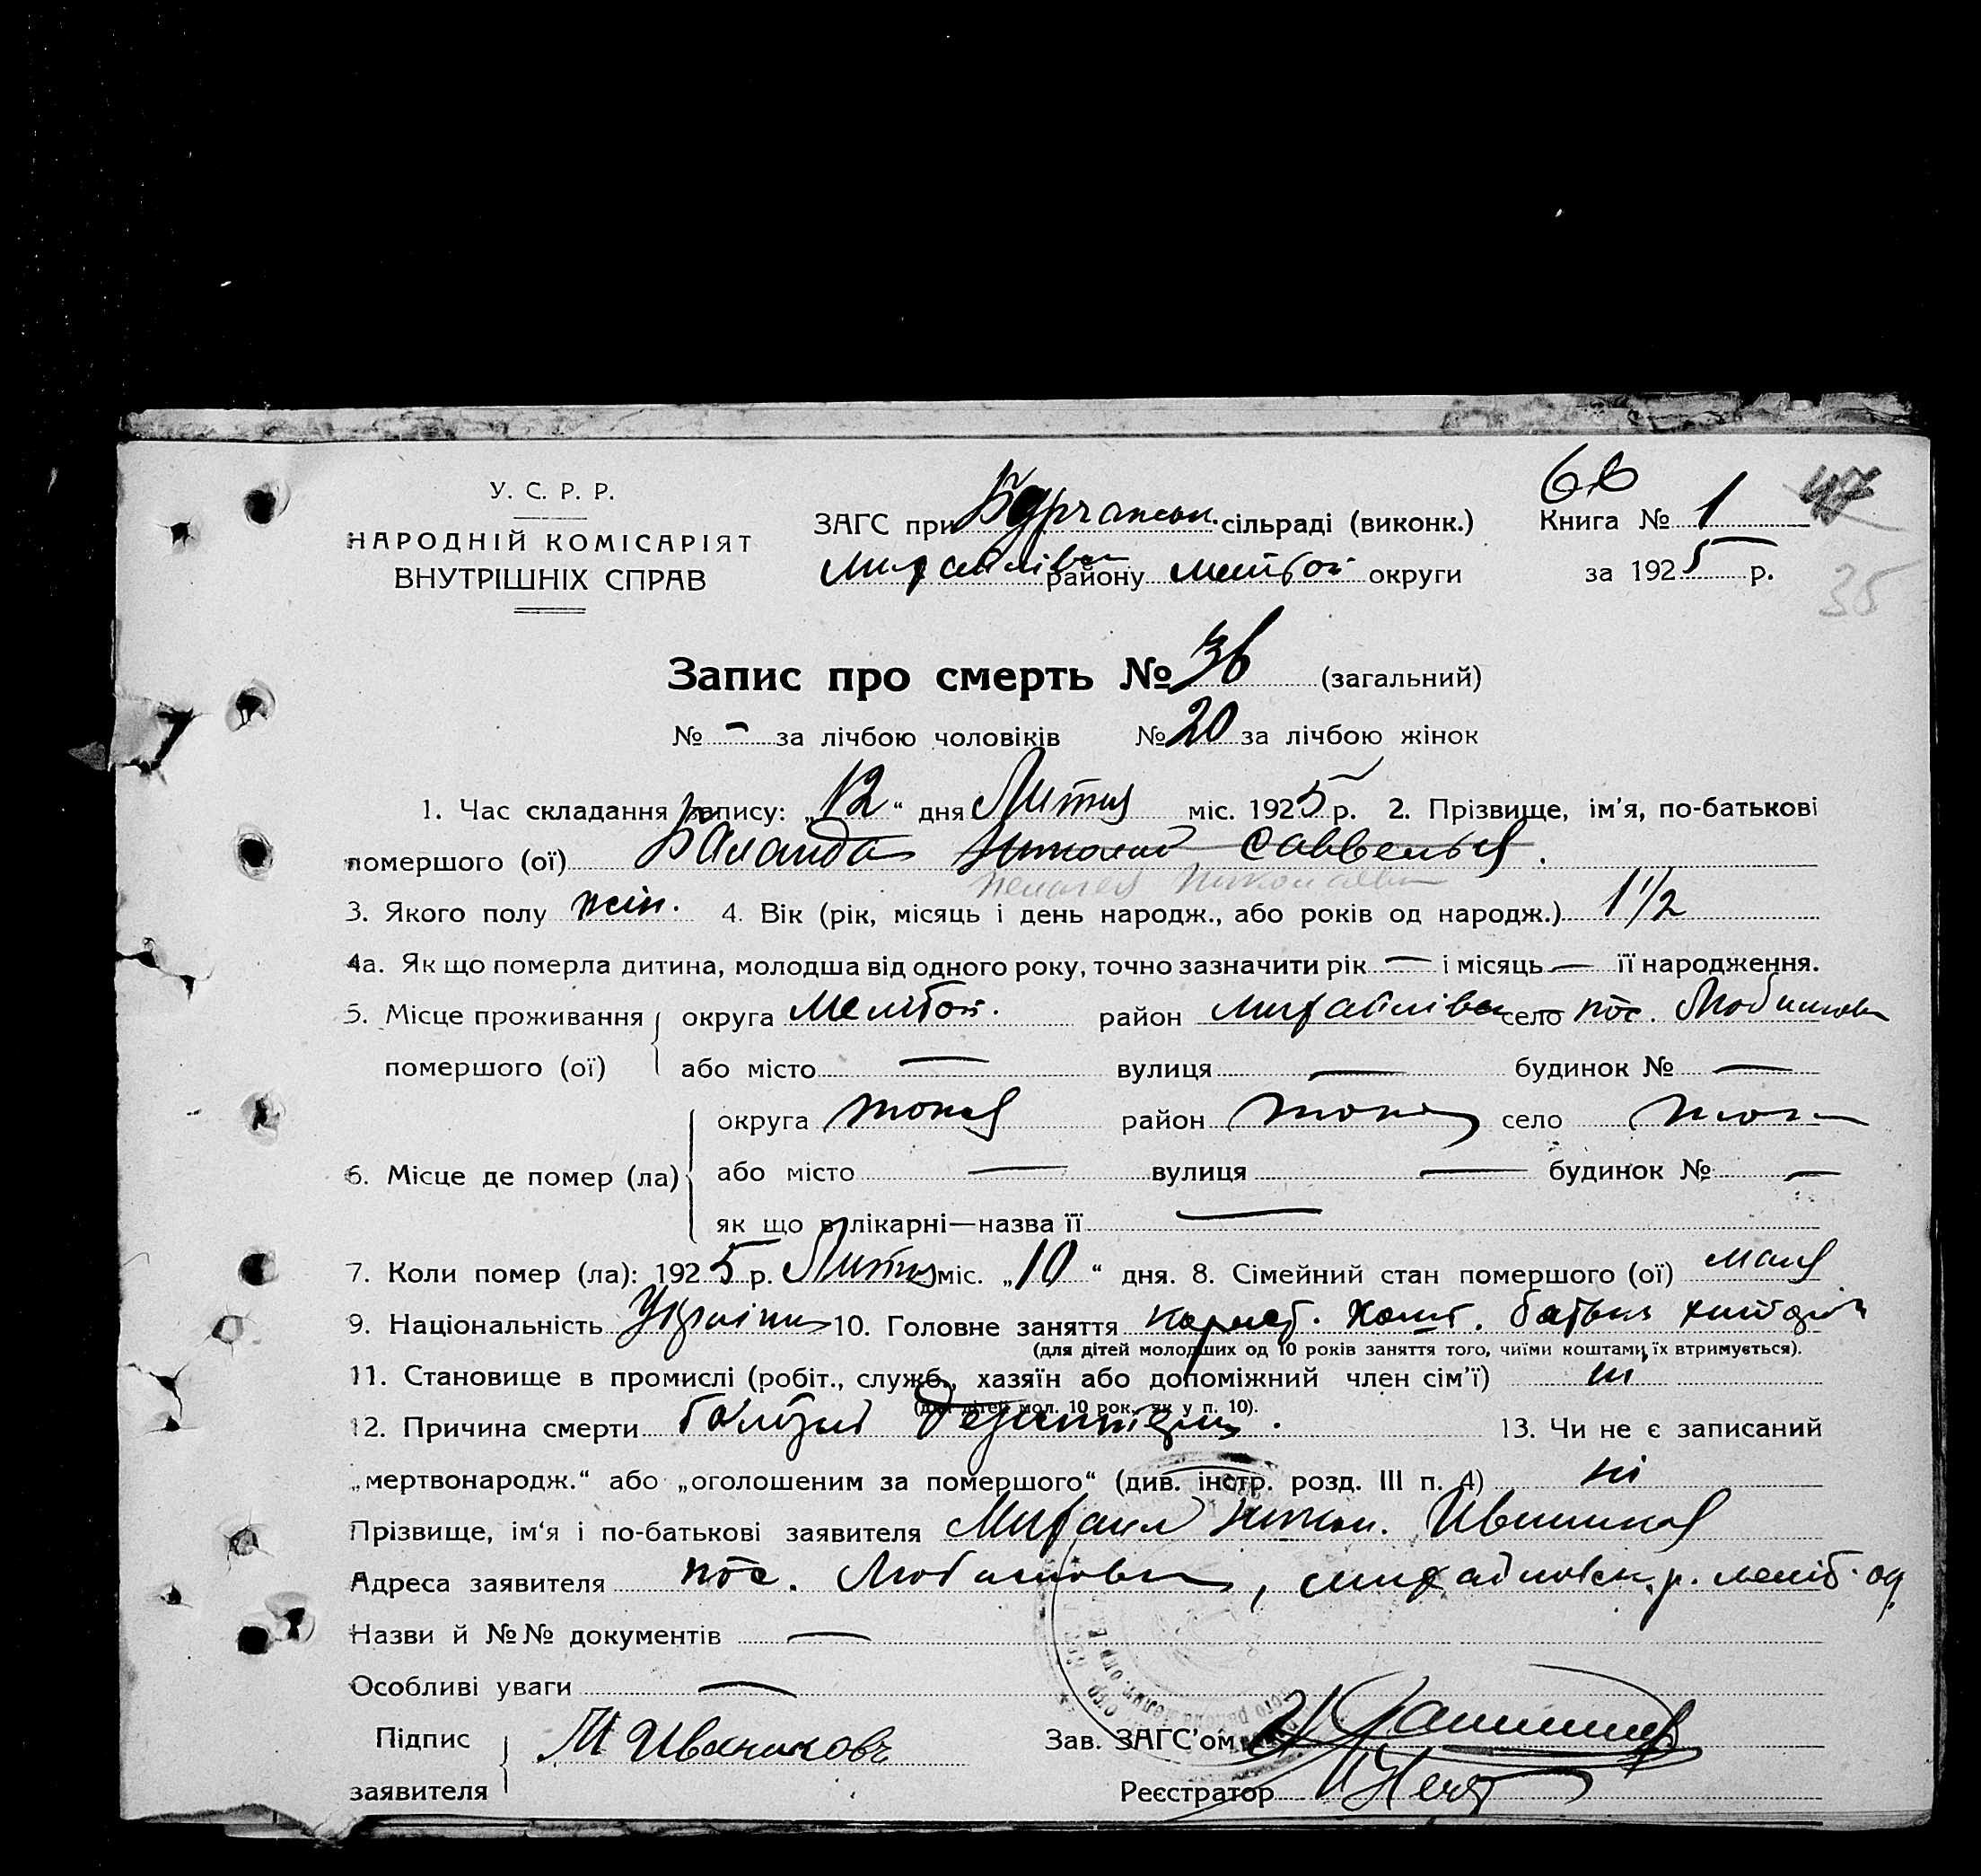 У. С. Р. Р.
НАРОДНІЙ КОМІСАРІЯТ
ВНУТРІШНІХ СПРАВ
ЗАГС при Бурчанськ. сільраді (виконк.)
Михайлівськ району Мелітоп округи
Книга № 1
за 1925 р.
35
Запис про смерть № 36 (загальний)
№ - за лічбою чоловіків № 20 за лічбою жінок
1. Час складання запису: „12“ дня Лютня міс. 1925 р. 2. Прізвище, ім'я, по-батькові
помершого (ої) Баланда Николай Саввельев.
Пелагея Николаевна
3. Якого полу жін. 4. Вік (рік, місяць і день народж., або років од народж.) 1 1/2
4а. Як що померла дитина, молодша від одного року, точно зазначити рік — і місяць — її народження.
5. Місце проживання округа Мелітоп. район Михайлівськ село пос. Любимовка
помершого (ої) або місто — вулиця — будинок № —
округа район село
6. Місце де помер (ла) або місто — вулиця — будинок № —
як що в лікарні—назва її —
7. Коли помер (ла): 1925 р. Лютня міс. „10“ дня. 8. Сімейний стан помершого (ої) мала
9. Національність Українка 10. Головне заняття батька
(для дітей молодших од 10 років заняття того, чиїми коштами їх втримується).
11. Становище в промислі (робіт., служб., хазяїн або допоміжний член сім'ї)
(для дітей мол. 10 рок. як у п. 10).
12. Причина смерти 13. Чи не є записаний
„мертвонародж.“ або „оголошеним за помершого“ (див. інстр. розд. III п. 4) ні
Прізвище, ім'я і по-батькові заявителя Михаил Никол.
Адреса заявителя пос. Любимовка, Михайловск. р. Меліт. ок
Назви й №№ документів —
Особливі уваги —
Підпис
заявителя М Иваников
Зав. ЗАГС'ом
Реєстратор